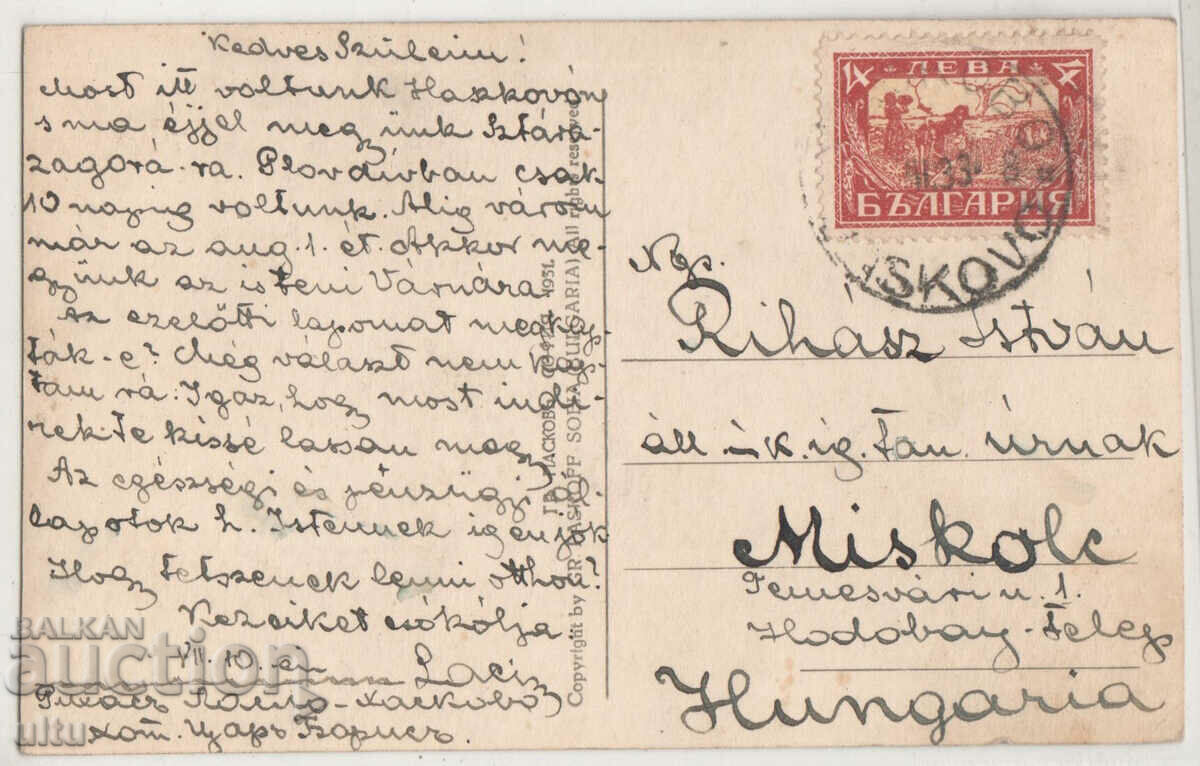 Kedves Szüleim!
Most itt voltunk Haskovón
s ma éjjel megyünk Sztára-
zagorá-ra. Plovdivban csak
10 napig voltunk. Alig várom
már az aug. 1. ét. Akkor me-
gyünk az isteni Várnára.
Az ezelőtti lapomat megkap-
ták-e? Még választ nem kap-
tam rá. Igaz, hogy most indi-
rekte kissé lassan megy.
Az egészségi és pénzügyi ál-
lapotok h. Istennek igen jók
Hogy tetszenek lenni otthon?
Kezeiket csókolja
VII. 10.-én Laci
Рихасъ Ласло-Хасково
хот. Царъ Борисъ.
ГР. ПАСКОВЪ СОФИЯ 1931.
Copyright by GR. PASKOFF SOFIA (BULGARIA) (all rights reserved)
1 ЛЕВА 1
БЪЛГАРИЯ
33
SKOVO
Ngs.
Rihász István
áll. k. ig. tan. úrnak
Miskolc
Temesvári u. 1.
Hodobay-telep
Hungaria
BALKAN
auction
ultu